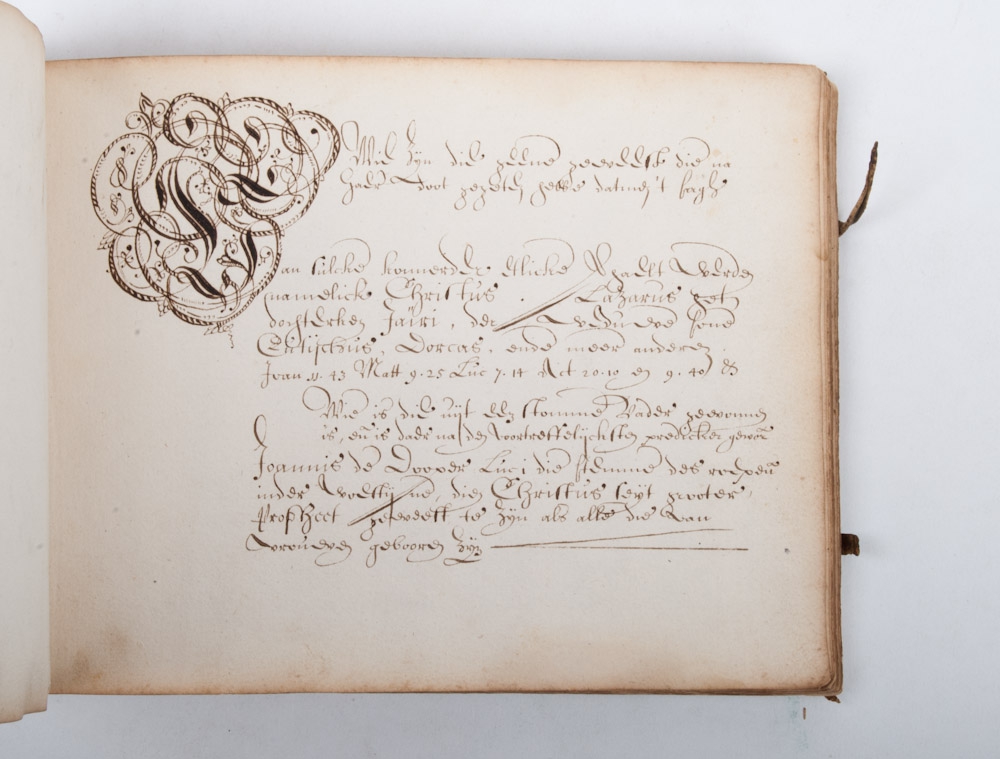 Wie zyn die geene geweest die na
haer doot gegeten hebbe datmen't sagh
Van sulcke konnender etlicke Verhaelt Werden
namelick Christus. Lazarus het
dochterken Jairi, der Weduwe sone
Eutijchus, Dorcas, ende meer anderen.
Joan 11. 43 Matt 9. 25 Luc 7. 14 Act 20. 10 en 9. 40
Wie is die uijt een stomme Vader gewonnen
is, en is daer na den voortreffelijcksten predicker gewor
Joannis de Dooper Luc 1 die stemme des roepen
inder Woestijne, dien Christus seyt grooter
Propheet geweest te zyn als alle die Van
Vrouwen gebooren zyn